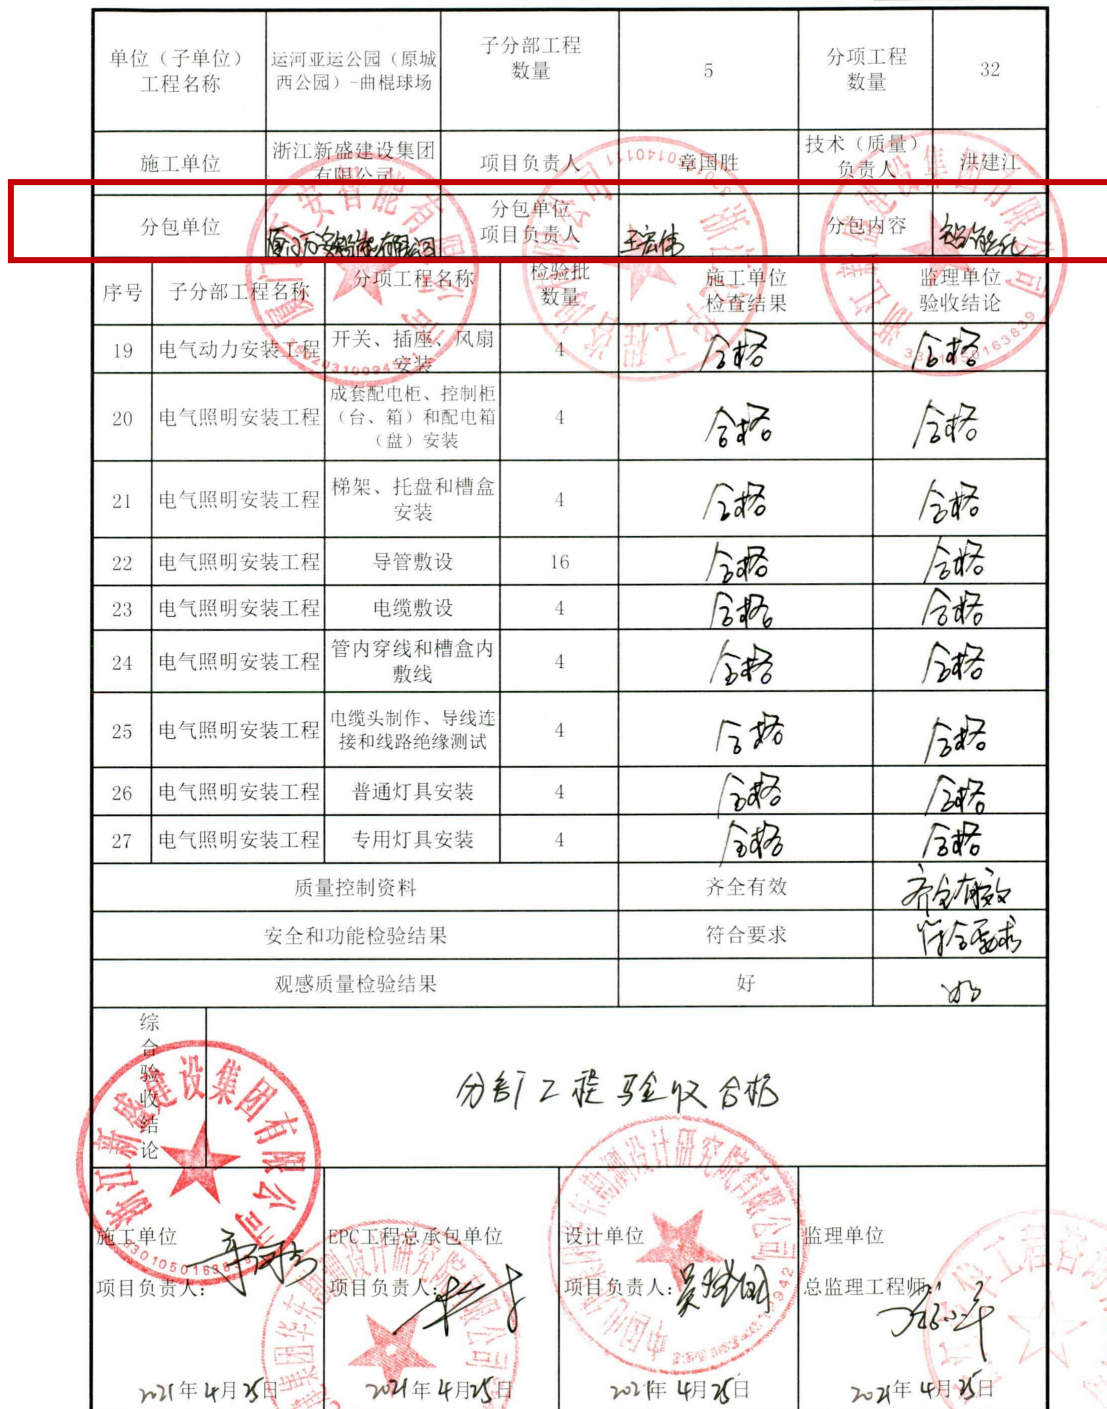 单位（子单位）
工程名称
运河亚运公园（原城
西公园）-曲棍球场
子分部工程
数量
5
分项工程
数量
32
施工单位
浙江新盛建设集团
有限公司
项目负责人
章国胜
技术（质量）
负责人
洪建江
分包单位
厦门万安智能有限公司
分包单位
项目负责人
王宏伟
分包内容
智能化
序号
子分部工程名称
分项工程名称
检验批
数量
施工单位
检查结果
监理单位
验收结论
19
电气动力安装工程
开关、插座、风扇
安装
4
合格
合格
20
电气照明安装工程
成套配电柜、控制柜
（台、箱）和配电箱
（盘）安装
4
合格
合格
21
电气照明安装工程
梯架、托盘和槽盒
安装
4
合格
合格
22
电气照明安装工程
导管敷设
16
合格
合格
23
电气照明安装工程
电缆敷设
4
合格
合格
24
电气照明安装工程
管内穿线和槽盒内
敷线
4
合格
合格
25
电气照明安装工程
电缆头制作、导线连
接和线路绝缘测试
4
合格
合格
26
电气照明安装工程
普通灯具安装
4
合格
合格
27
电气照明安装工程
专用灯具安装
4
合格
合格
质量控制资料
齐全有效
齐全有效
安全和功能检验结果
符合要求
符合要求
观感质量检验结果
好
好
综合验收结论
分部工程验收合格
浙江新盛建设集团有限公司
施工单位
项目负责人：
2021年4月25日
EPC工程总承包单位
项目负责人：
2021年4月25日
设计单位
项目负责人：
2021年4月25日
监理单位
总监理工程师：
2021年4月25日